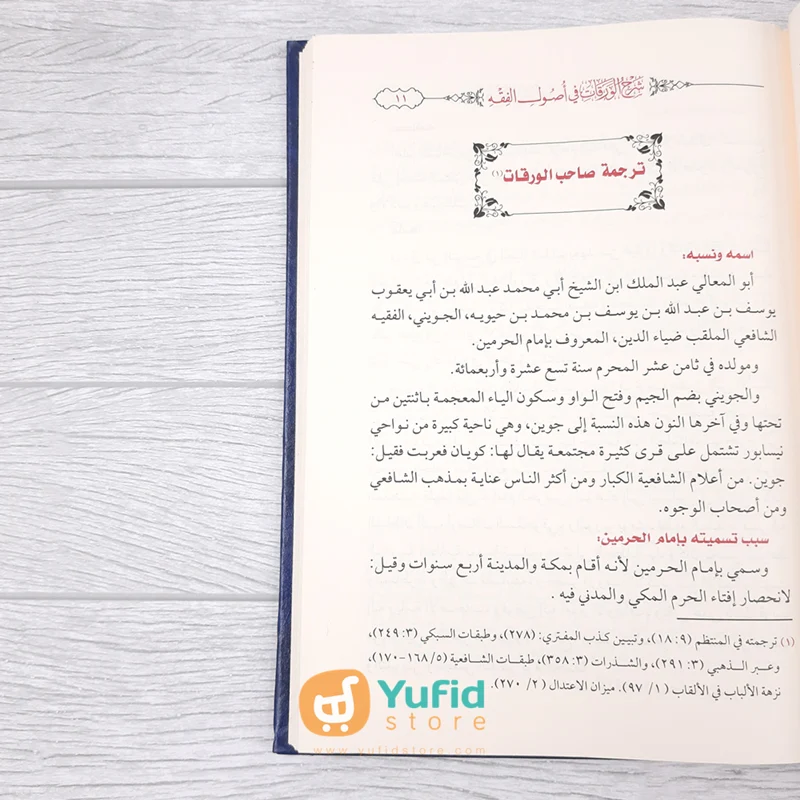 شرح الورقات في أصول الفقه
١١
ترجمة صاحب الورقات (١)
اسمه ونسبه:
أبو المعالي عبد الملك ابن الشيخ أبي محمد عبد الله بن أبي يعقوب
يوسف بن عبد الله بن يوسف بن محمد بن حيويه، الجويني، الفقيه
الشافعي الملقب ضياء الدين، المعروف بإمام الحرمين.
ومولده في ثامن عشر المحرم سنة تسع عشرة وأربعمائة.
والجويني بضم الجيم وفتح الواو وسكون الياء المعجمة باثنتين من
تحتها وفي آخرها النون هذه النسبة إلى جوين، وهي ناحية كبيرة من نواحي
نيسابور تشتمل على قرى كثيرة مجتمعة يقال لها: كويان فعربت فقيل:
جوين. من أعلام الشافعية الكبار ومن أكثر الناس عناية بمذهب الشافعي
ومن أصحاب الوجوه.
سبب تسميته بإمام الحرمين:
وسمي بإمام الحرمين لأنه أقام بمكة والمدينة أربع سنوات وقيل:
لانحصار إفتاء الحرم المكي والمدني فيه .
(١) ترجمته في المنتظم (٩: ١٨)، وتبيين كذب المفتري: (٢٧٨)، وطبقات السبكي (٣: ٢٤٩)،
وعبر الذهبي (٣: ٢٩١)، والشذرات (٣: ٣٥٨)، طبقات الشافعية (٥/ ١٦٨-١٧٠)،
نزهة الألباب في الألقاب (١/ ٩٧). ميزان الاعتدال (٢/ ٢٧٠).
Yufid
store
www.yufidstore.com